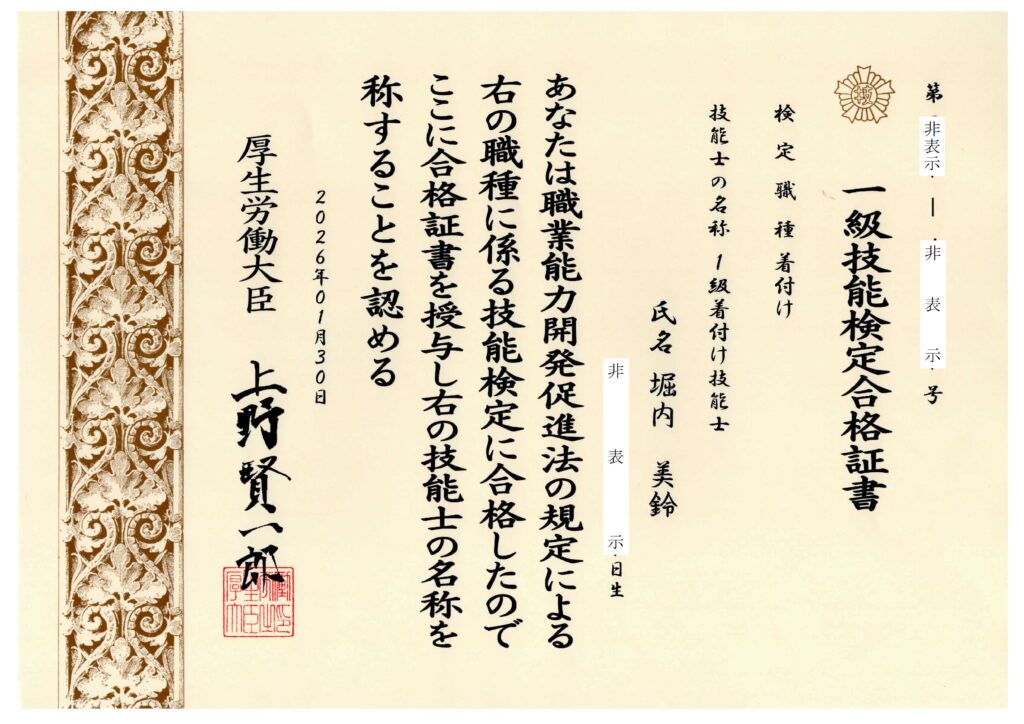 第 非表示 ー 非表示 号
一級技能検定合格証書
検定職種 着付け
技能士の名称 1級着付け技能士
氏名 堀内 美鈴
非表示 日生
あなたは職業能力開発促進法の規定による
右の職種に係る技能検定に合格したので
ここに合格証書を授与し右の技能士の名称を
称することを認める
2026年01月30日
厚生労働大臣 上野賢一郎